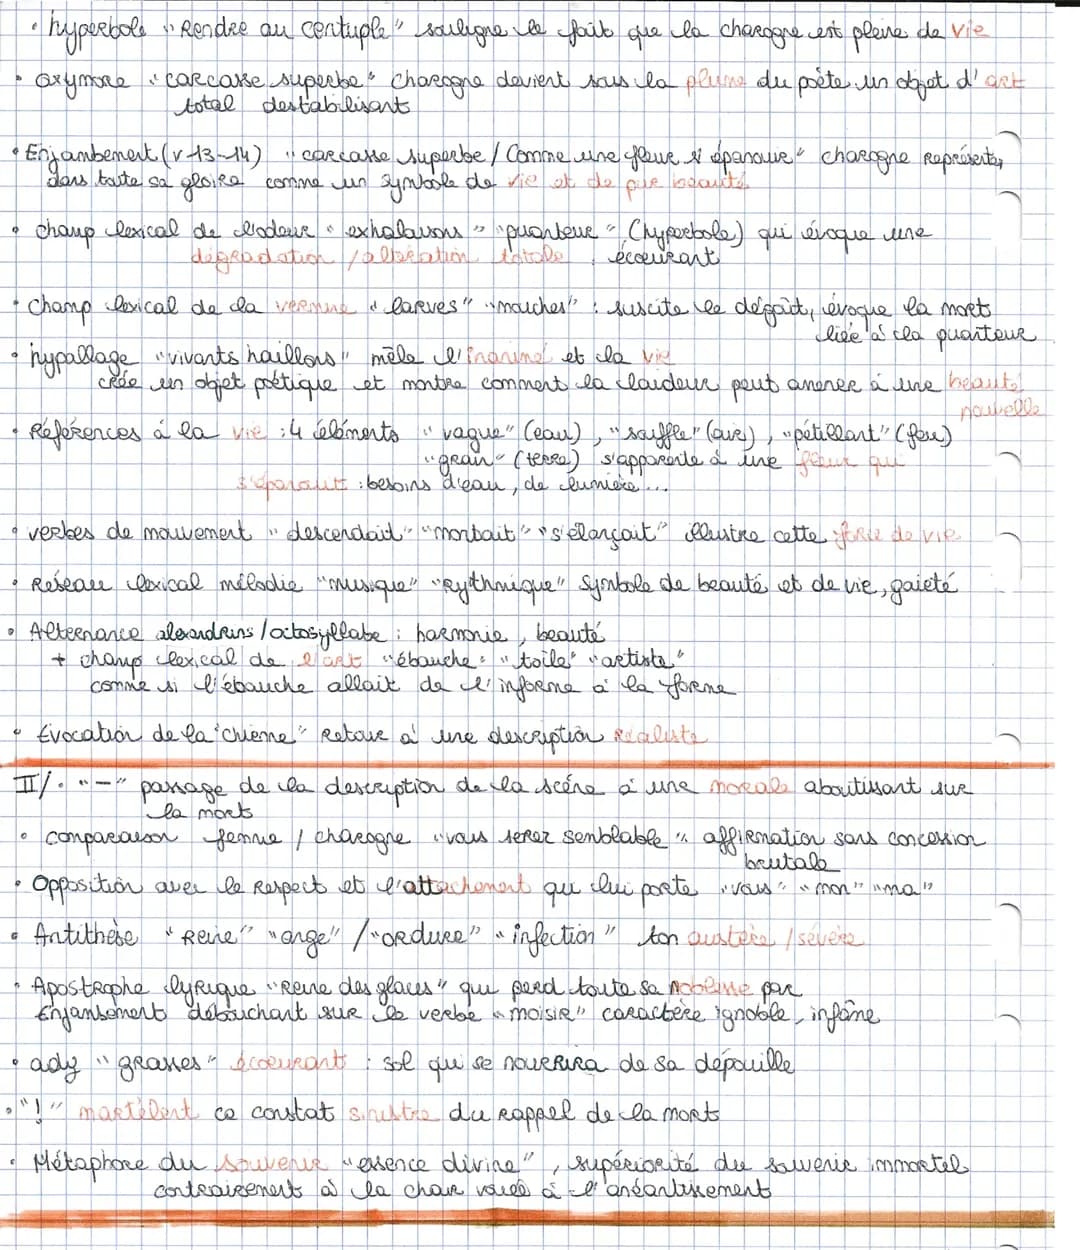 • hyperbole "Rendre au centuple" souligne le fait que la charogne est pleine de vie
• oxymore "carcasse superbe" charogne devient sous la plume du poète un objet d'art
total destabilisant
• Enjambement (v 13-14) "carcasse superbe / Comme une fleur s'épanouir" charogne représentée,
dans toute sa gloire comme un symbole de vie et de pure beauté
• champ lexical de l'odeur "exhalaisons" "puanteur" (hyperbole) qui évoque une
dégradation / altération totale, écœurant
• champ lexical de la vermine "larves" "mouches" : suscite le dégoût, évoque la mort
liée à la puanteur
• hypallage "vivants haillons" mêle l'inanimé et la vie
crée un objet poétique et montre comment la laideur peut amener à une beauté
nouvelle
• Références à la vie : 4 éléments "vague" (eau), "souffle" (air), "pétillant" (feu)
"grain" (terre) s'apparente à une fleur qui
s'épanouit : besoins d'eau, de lumière...
• verbes de mouvement "descendait" "montait" "s'élançait" illustre cette force de vie
• Réseau lexical mélodie "musique" "Rythmique" symbole de beauté et de vie, gaieté
• Alternance alexandrins / octosyllabe : harmonie, beauté
+ champ lexical de l'art "ébauche" "toile" "artiste"
comme si l'ébauche allait de l'informe à la forme
• Évocation de la "chienne" Retour à une description Réaliste
II/. "—" passage de la description de la scène à une morale aboutissant sur
la mort
• comparaison femme / charogne "vous serez semblable" affirmation sans concession
brutale
• Opposition avec le Respect et l'attachement qui lui porte "vous" "mon" "ma"
• Antithèse "Reine" "ange" / "ordure" "infection" ton austère / sévère
• Apostrophe lyrique "Reine des glaces" qui perd toute sa noblesse par
Enjambement débouchant sur le verbe "moisir" caractère ignoble, infâme
• adj "grasses" écœurant : sol qui se nourrira de sa dépouille
• "!" martèlent ce constat sinistre du rappel de la mort
• Métaphore du souvenir "essence divine", supériorité du souvenir immortel
contrairement à la chair vouée à l'anéantissement